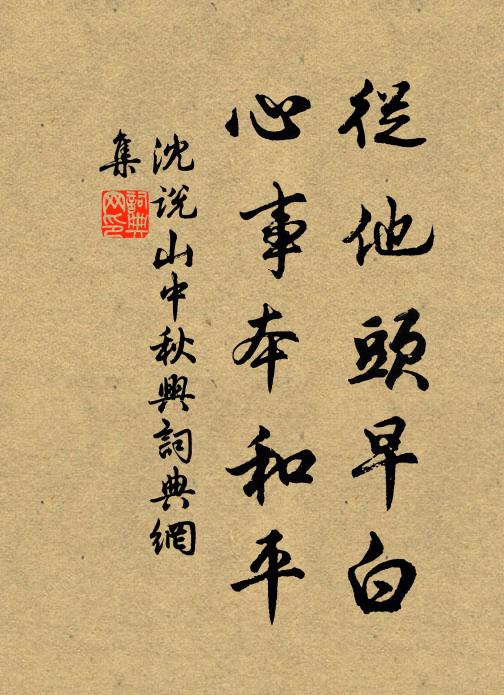 從他頭早白
心事本和平
沈說山中秋興詞典網
集
詞典
网印